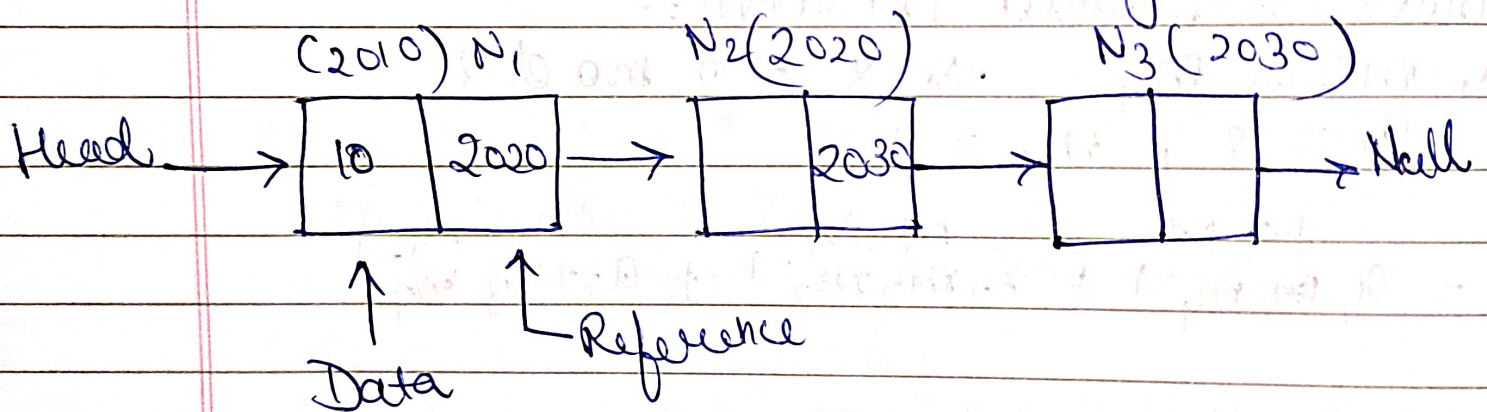 (2010) N1 N2(2020) N3(2030)
Head 10 2020 2030 Null
Reference
Data